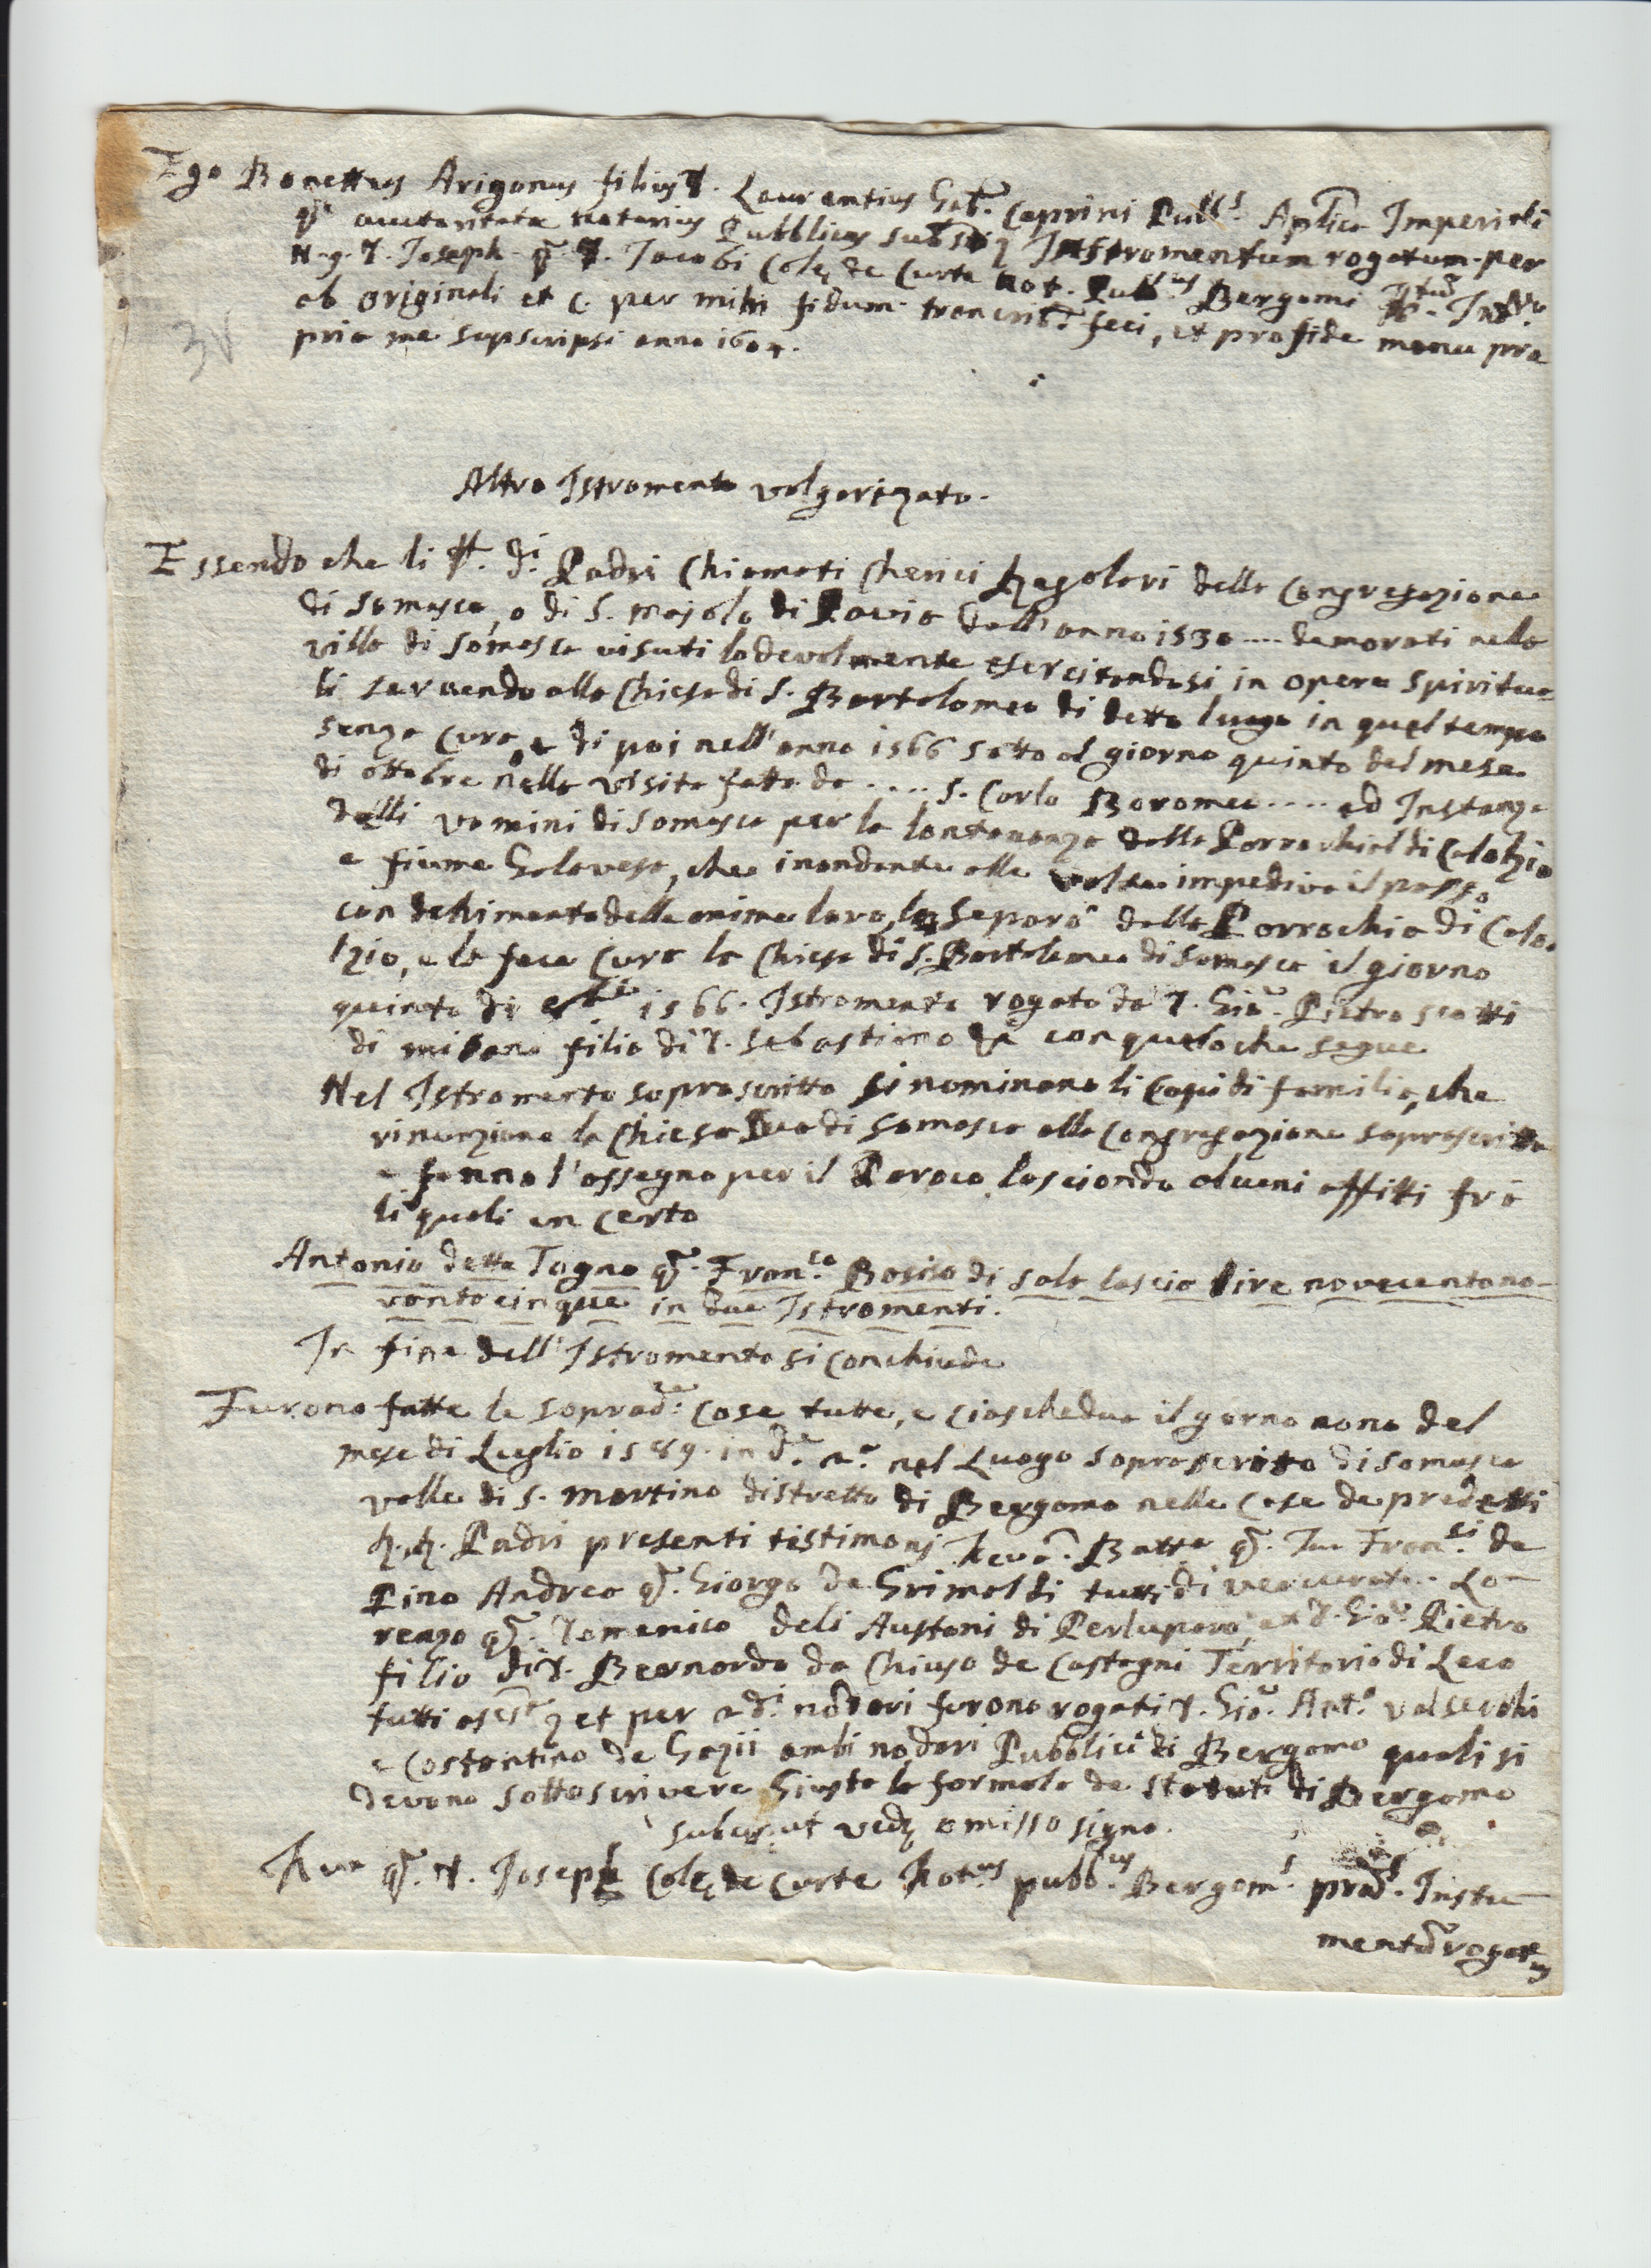 Ego Bonettus Arigonus filius T. Laurentius hab. Caprini Pub. Aplica Imperiali
q auctoritate notarius Pubblicus Instromentum rogatum per
N. q. T. Joseph q. T. Jacobi Cole de Curte not. Pub.us Bergomi
ab originali et c. per mihi fidum transcrib. feci, et pro fide manu pro
pria me supscripsi anno 1604.
3V
Altro Istromento volgarizato.
Essendo che li di Padri Chiamati Cherici Regolari della Congregazione
di Somasca, o di S. Majolo di Pavia dall'anno 1530 .... demorati nella
villa di Somasca visuti lodevolmente esercitandosi in opera Spiritua
li servendo alla Chiesa di S. Bartolomeo di detto luogo in quel tempo
senza Cura, e di poi nell'anno 1566 sotto al giorno quinto del mese
di ottobre nella visita fatta da .... S. Carlo Boromeo .... ad Instanza
delli vomini di Somasca per la lontananza dalla Parrochial di Calolzio
e fiume Galavesa, che inondante alle volte impediva il passo
con detrimento delle anime loro, la Separò dalla Parrochia di Calo
lzio, e la fece Cura la Chiesa di S. Bartolomeo di Somasca il giorno
quinto di 1566. Istromento rogato da T. Gio. Pietro Scotti
di milano filio di T. Sebastiano con quelo che segue
Nel Istromento sopra scritto si nominano li Capi di familia, che
rinunziano la Chiesa Sua di Somasca alla Congregazione soprascritta
e fanno l'assegno per il Paroco lasciando alcuni affitti frà
li quali un certo
Antonio detto Togno q. Fran.co Bosisio di Sala lascia lire novecentono-
vantacinque in due Istromenti.
In fine dell'Istromento si Conchiude
Furono fatte le soprad. Cose tutte, e ciaschedua il giorno nono del
mese di Luglio 1589. in d. nel Luogo soprascritto di Somasca
valle di S. Martino distretto di Bergomo nelle Case de predetti
Padri presenti testimonj Batta q. Fran.ci de
Pino Andrea q. Giorgo de Grimoldi tutti di vercurato. Lo-
renzo q. Domenico deli Austoni di Perluparo, et T. Gio. Pietro
filio di T. Bernardo da Chiuso de Castagni Territorio di Leco
tutti et per notari furono rogati T. Gio. Ant.o valsecchi
e Costantino de Gazii ambi nodari Pubblici di Bergomo quali si
devono sottoscrivere Giusta la formola de statuti di Bergomo
omisso signo.
q. N. Joseph Cole de Curte Not.us pubb.us Bergom. Instu-
mentu rogat